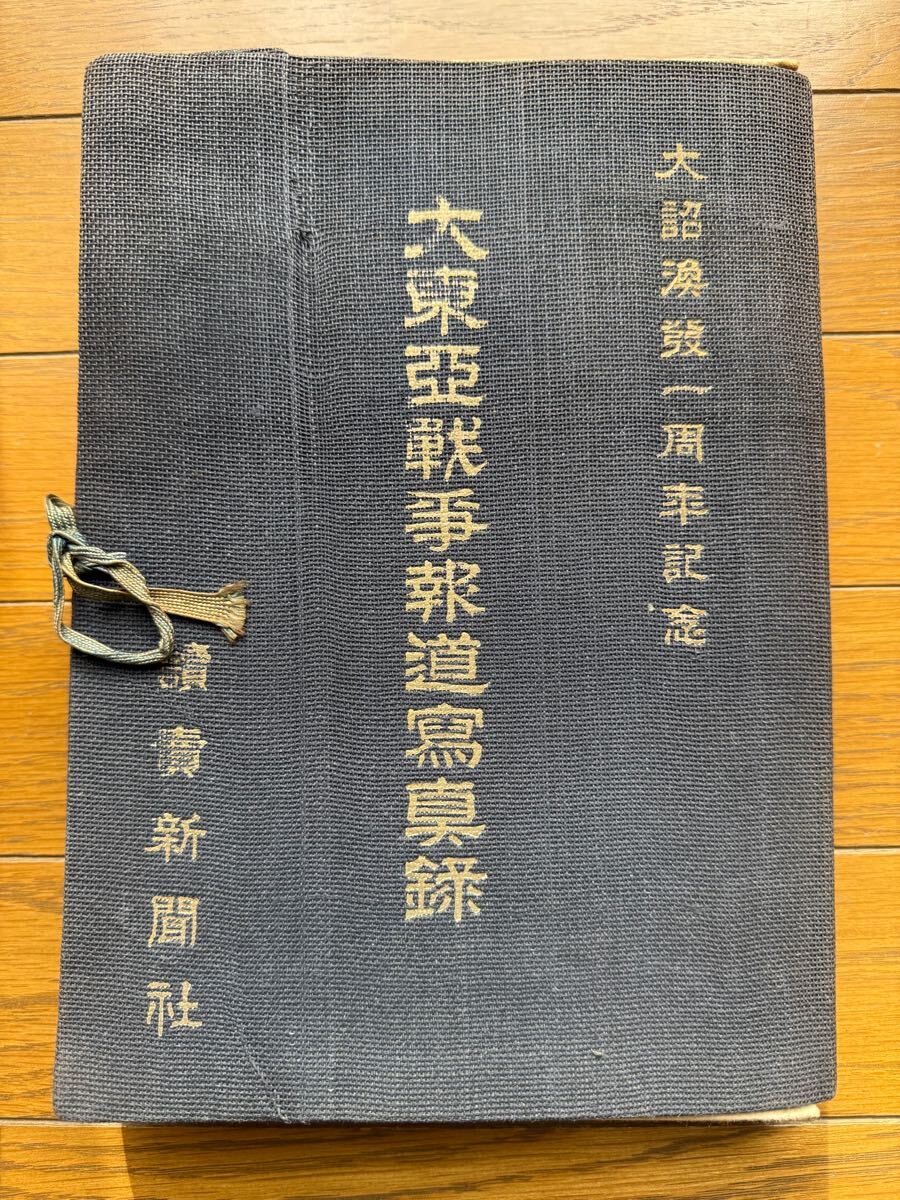 大詔渙發一周年記念
大東亞戰爭報道寫真錄
讀賣新聞社